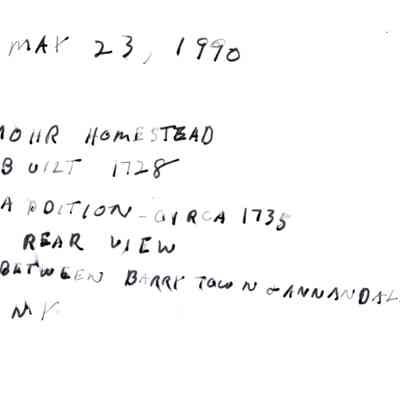 MAY 23, 1990
MOHR HOMESTEAD
BUILT 1728
ADDITION - CIRCA 1735
REAR VIEW
BETWEEN BARRYTOWN & ANNANDAL
NY